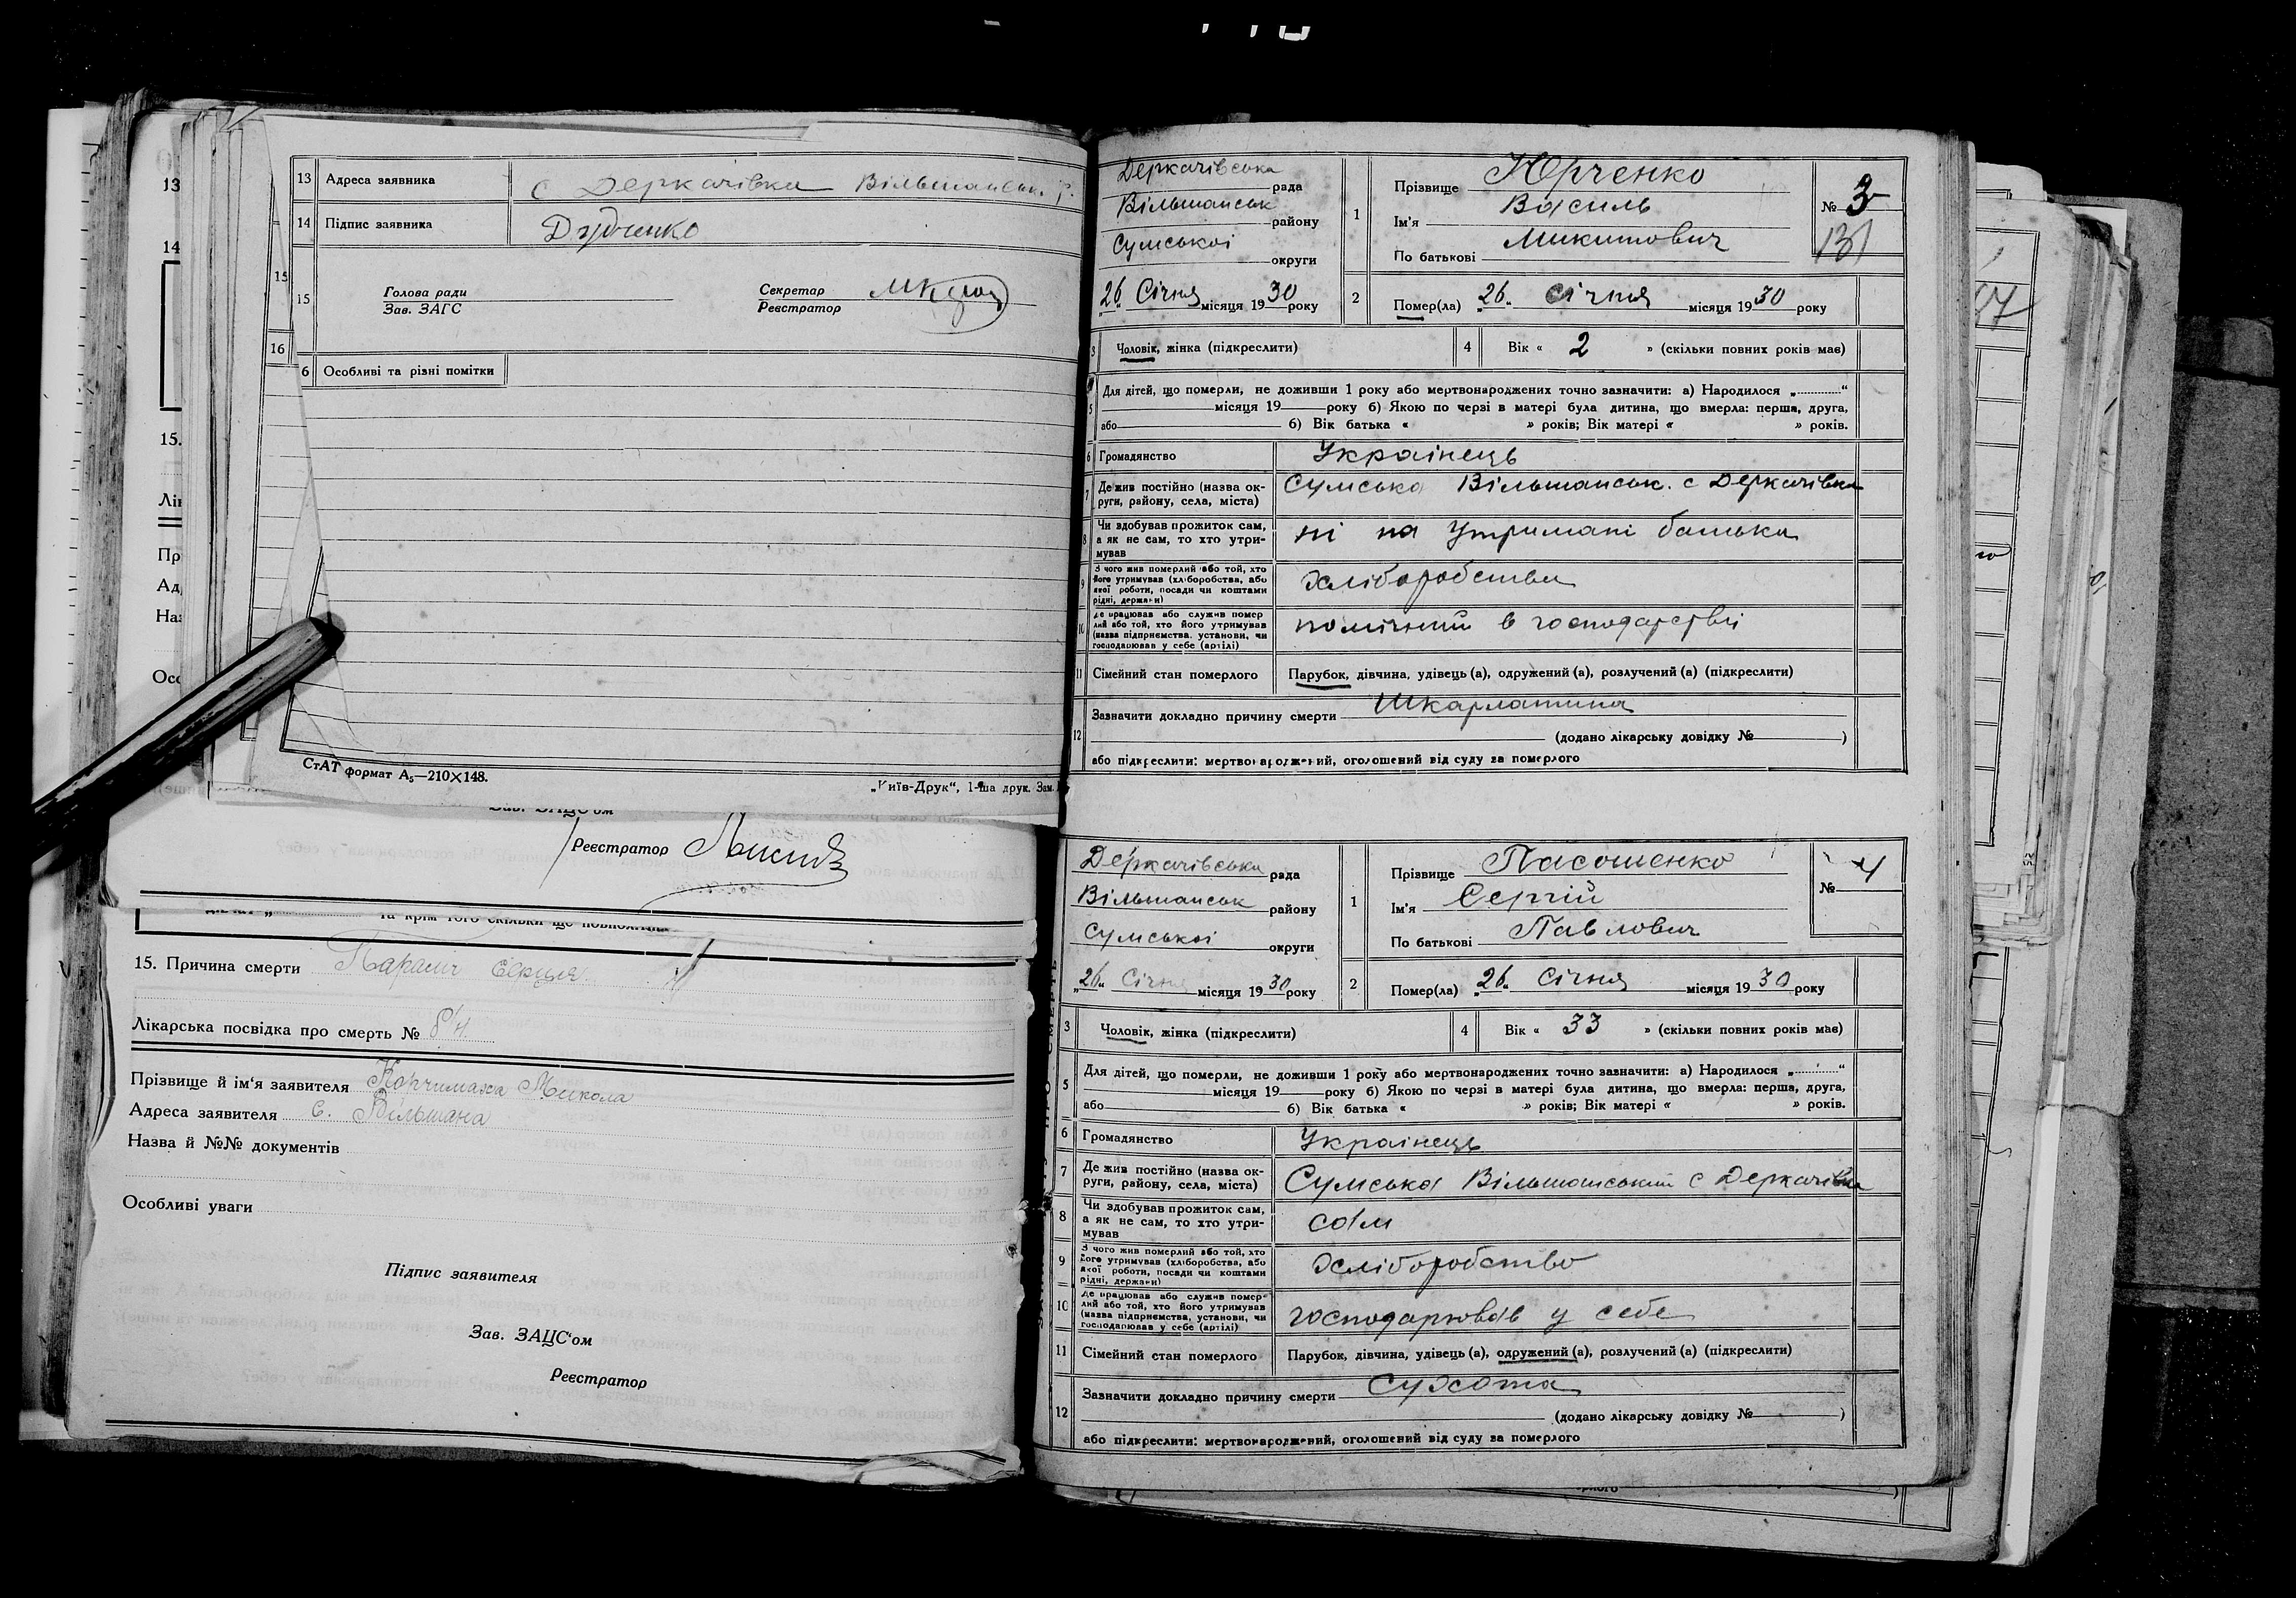 13 Адреса заявника с Деркачівка Вільшанськ. р.
14 Підпис заявника Дудченко
15 Голова ради Секретар
Зав. ЗАГС Реєстратор
16
6 Особливі та різні помітки
СтАТ формат А₅—210×148.
„Київ-Друк“, 1-ша друк. Зам.
13
14
15.
Лі
Пр
Ад
На
Осо
Зав. ЗАЦС'ом
Реєстратор
та крім того скільки ще
15. Причина смерти Параліч серця
Лікарська посвідка про смерть № б/н
Прізвище й ім'я заявителя Корчимаха Микола
Адреса заявителя с. Вільшана
Назва й №№ документів
Особливі уваги
Підпис заявителя
Зав. ЗАЦС'ом
Реєстратор
Деркачівська рада
Вільшанськ району
Сумської округи
„26“ Січня місяця 1930 року
1 Прізвище Юрченко
Ім'я Василь
По батькові Микитович
№ 3
131
2 Помер(ла) „26“ січня місяця 1930 року
3 Чоловік, жінка (підкреслити) 4 Вік « 2 » (скільки повних років має)
5 Для дітей, що померли, не доживши 1 року або мертвонароджених точно зазначити: а) Народилося „ “
місяця 19 року б) Якою по черзі в матері була дитина, що вмерла: перша, друга,
або б) Вік батька « » років; Вік матері « » років.
6 Громадянство Українець
7 Де жив постійно (назва округи, району, села, міста) Сумська Вільшанськ. с Деркачівка
8 Чи здобував прожиток сам, а як не сам, то хто утримував ні на утримані батька
9 З чого жив померлий або той, хто його утримував (хліборобства, або якої роботи, посади чи коштами рідні, держави) Хліборобства
10 Де працював або служив померлий або той, хто його утримував (назва підприємства, установи, чи господарював у себе (артілі) помічний в господарстві
11 Сімейний стан померлого Парубок, дівчина, удівець (а), одружений (а), розлучений (а) (підкреслити)
12 Зазначити докладно причину смерти Шкарлатина
(додано лікарську довідку № )
або підкреслити: мертвонароджений, оголошений від суду за померлого
Деркачівська рада
Вільшанськ району
Сумської округи
„26“ Січня місяця 1930 року
1 Прізвище Пасошенко
Ім'я Сергій
По батькові Павлович
№ 4
2 Помер(ла) „26“ Січня місяця 1930 року
3 Чоловік, жінка (підкреслити) 4 Вік « 33 » (скільки повних років має)
5 Для дітей, що померли, не доживши 1 року або мертвонароджених точно зазначити: а) Народилося „ “
місяця 19 року б) Якою по черзі в матері була дитина, що вмерла: перша, друга,
або б) Вік батька « » років; Вік матері « » років.
6 Громадянство Українець
7 Де жив постійно (назва округи, району, села, міста) Сумська Вільшанський с Деркачівка
8 Чи здобував прожиток сам, а як не сам, то хто утримував сам
9 З чого жив померлий або той, хто його утримував (хліборобства, або якої роботи, посади чи коштами рідні, держави) Хліборобство
10 Де працював або служив померлий або той, хто його утримував (назва підприємства, установи, чи господарював у себе (артілі) господарював у себе
11 Сімейний стан померлого Парубок, дівчина, удівець (а), одружений (а), розлучений (а) (підкреслити)
12 Зазначити докладно причину смерти Сухота
(додано лікарську довідку № )
або підкреслити: мертвонароджений, оголошений від суду за померлого